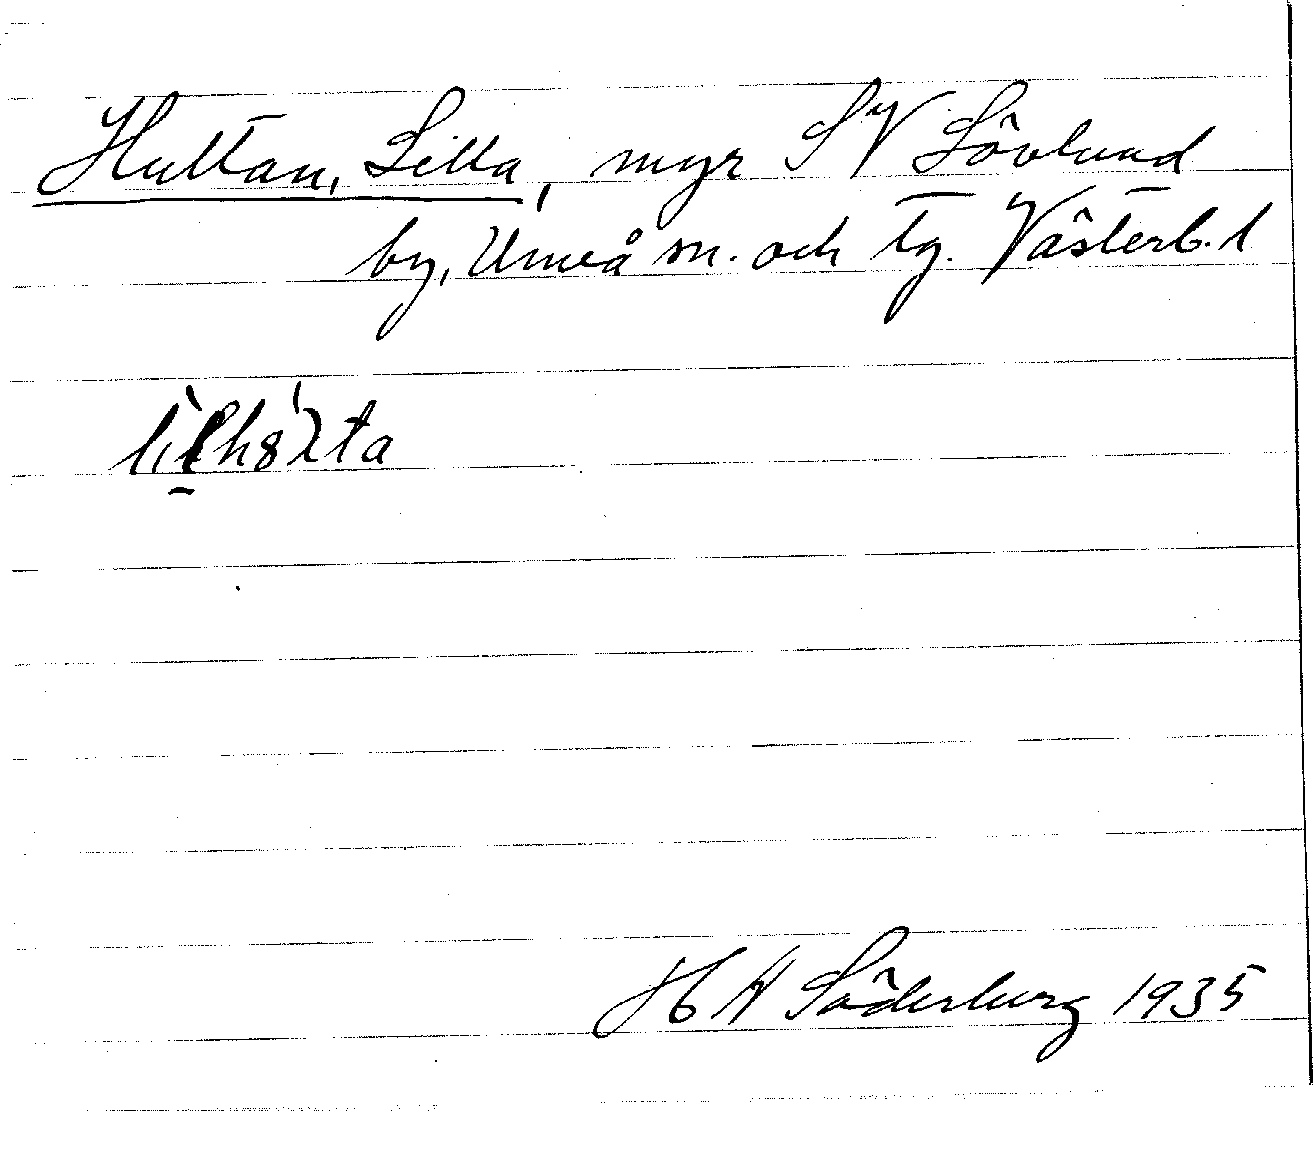 Hultan, Lilla, myr SV Lövlund
by, Umeå sn. och tg. Västerb. l
H A Söderberg 1935